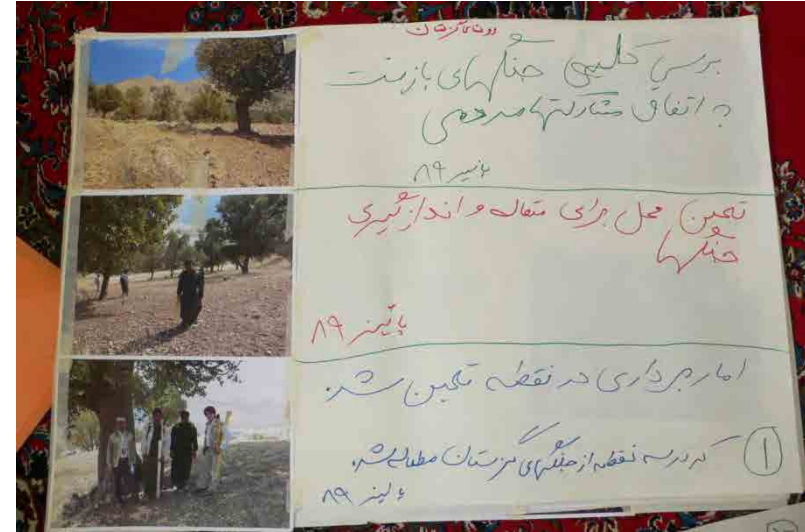 روستای گزستان
بررسی کلیهی جنگلهای بازفت
به اتفاق مشارکتهای مردمی
پاییز ۸۹
تعین محل برای مقاله و اندازگیری
جنگلها
پائیز ۸۹
امار برداری در نقطه تعین شده
که در سه نقطه از جنگلهای گزستان مطالعه شد
۱
پائیز ۸۹